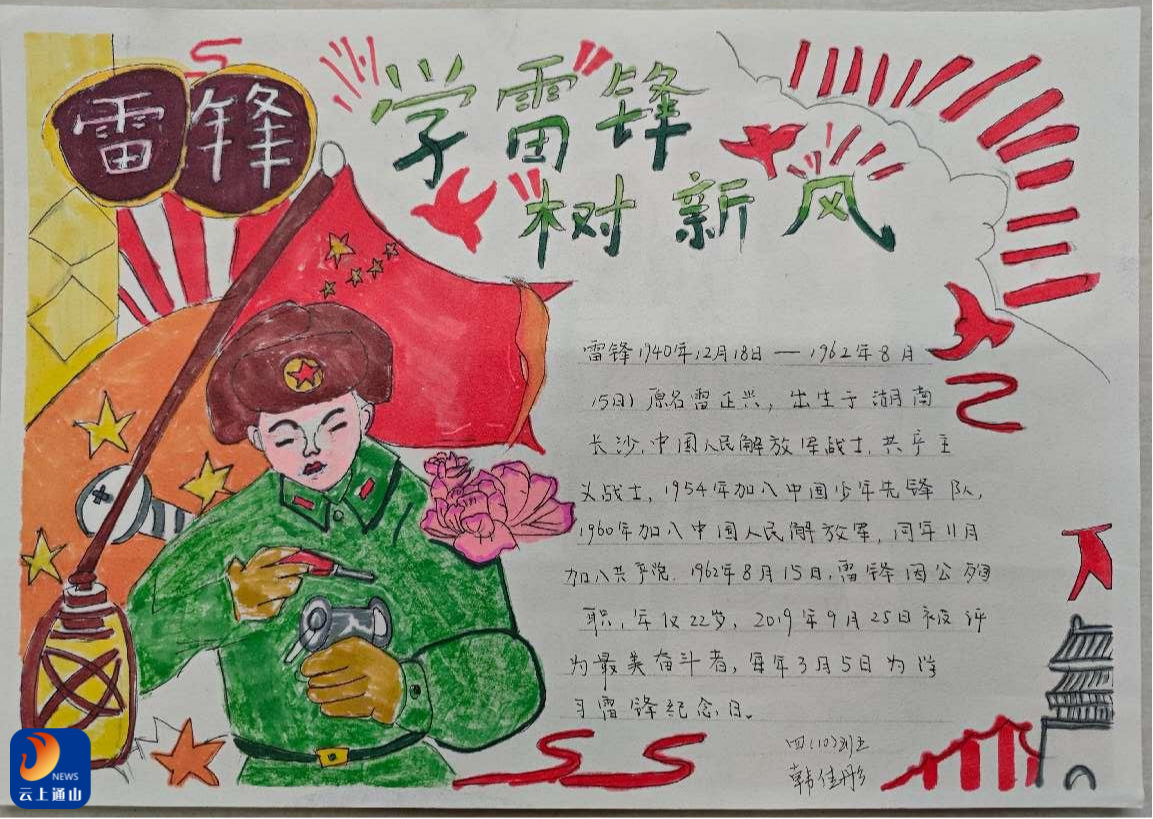 雷锋
学雷锋
树新风
雷锋1940年12月18日 — 1962年8月
15日) 原名雷正兴，出生于湖南
长沙，中国人民解放军战士，共产主
义战士，1954年加入中国少年先锋队，
1960年加入中国人民解放军，同年11月
加入共产党，1962年8月15日，雷锋因公殉
职，年仅22岁，2019年9月25日被评
为最美奋斗者，每年3月5日为学
习雷锋纪念日。
四(10)班
韩佳彤
NEWS
云上通山